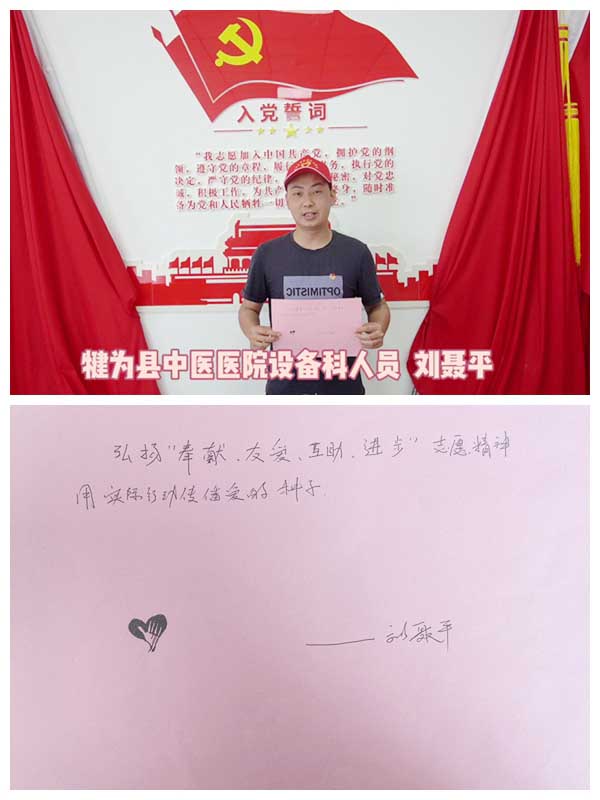 入党誓词
“我志愿加入中国共产党，拥护党的纲
领，遵守党的章程，履行 务，执行党的
决定，严守党的纪律， 秘密，对党忠
诚，积极工作，为共产 身，随时准
备为党和人民牺牲一切
OPTIMISTIC
犍为县中医医院设备科人员 刘聂平
弘扬“奉献、友爱、互助、进步”志愿精神
用实际行动传播爱的种子.
——刘聂平